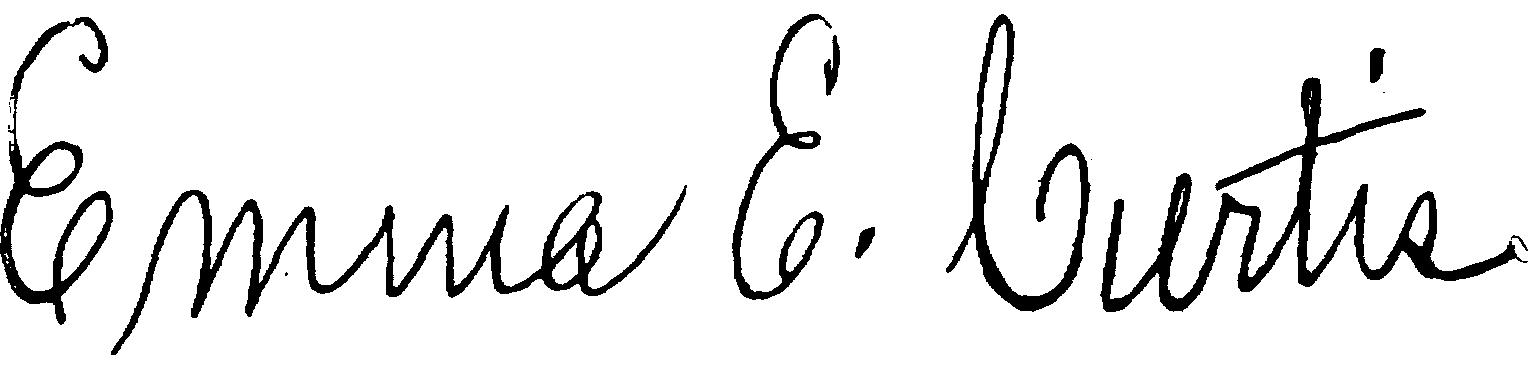 Emma E. Curtis